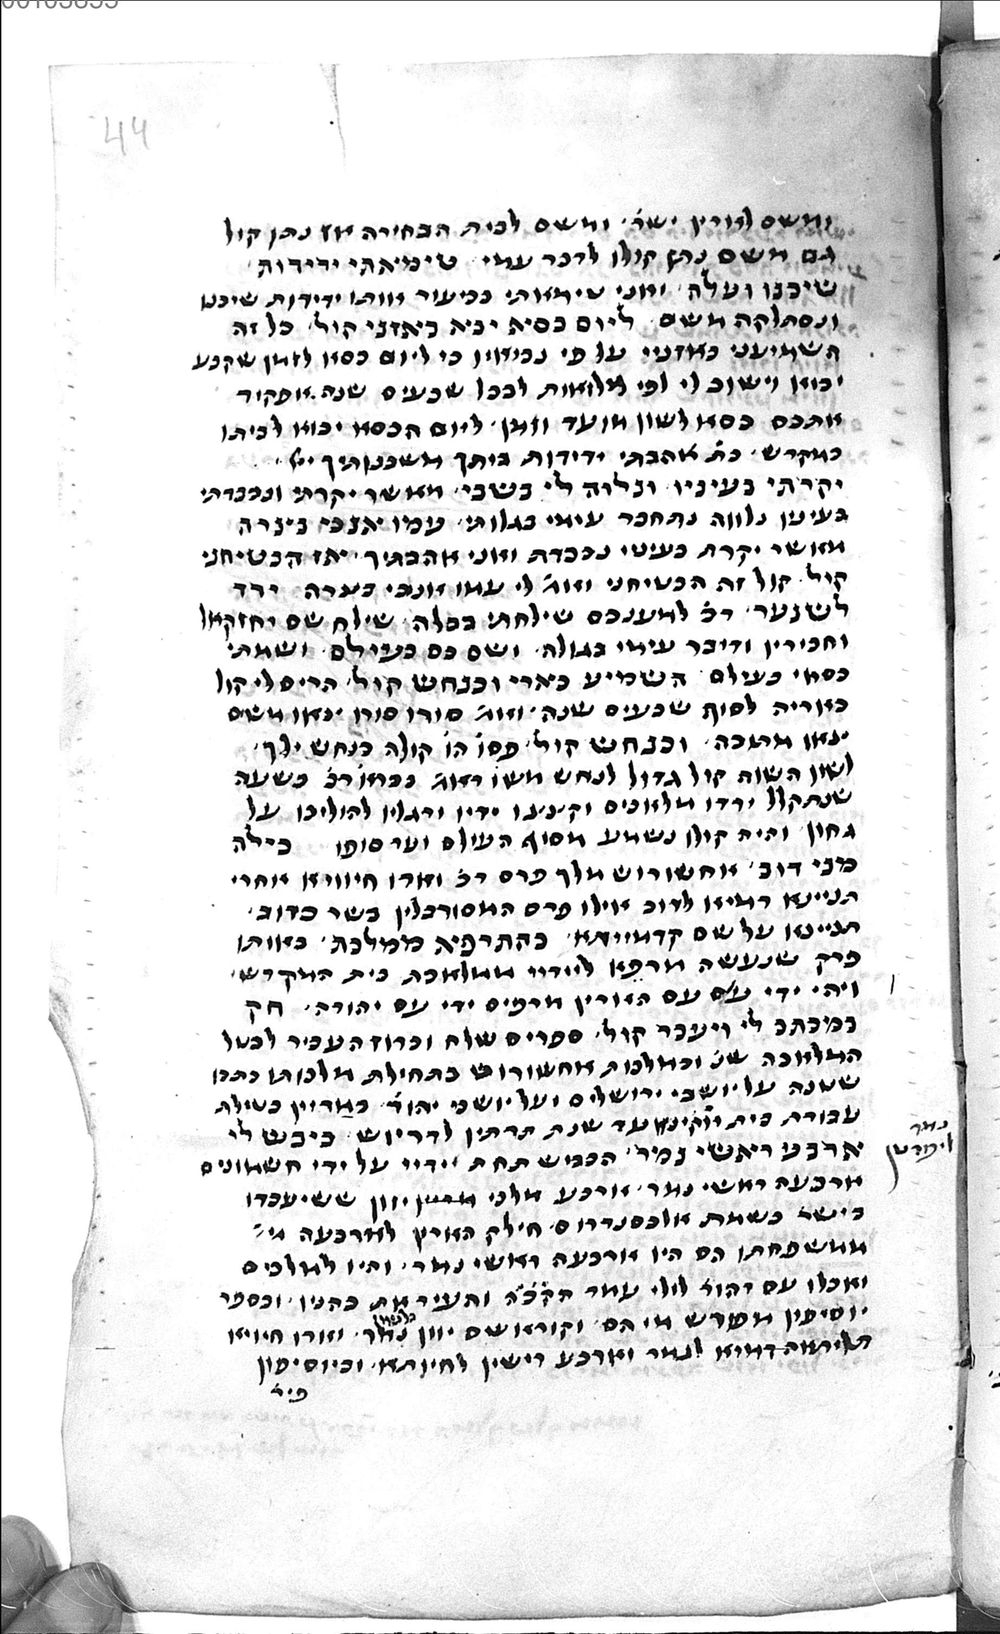 44
ומשם לארץ ישר׳ ומשם לבית הבחירה אז נתן קול
גם משם נתן קולו לדבר עמי טימאתי ידידות
שיכנו ועלה ואני טימאתי בביעור אותו ידידות שיכנו
ונסתלקה משם ליום כסא יבא באזני קול כל זה
השמיעני באזניי על פי נביאיו כי ליום כסא לזמן שקבע
יבוא וישוב לי לפי מלואות לבבל שבעים שנה אפקוד
אתכם כסא לשון מועד וזמן ליום הכסא יבוא לביתו
במקדש כת׳ אהבתי ידידות ביתך משכנותיך יי׳
יקרתי בעיניו ונלוה לי בשבי מאשר יקרתי ונכבדתי
בעיניו נלווה נתחבר עימי בגלותי עמו אנכי בצרה
מאשר יקרת בעיניי נכבדת ואני אהבתיך אז הבטיחני
קול קול זה הבטיחני ואו׳ לי עמו אנכי בצרה ירד
לשנער דכ׳ למענכם שילחתי בבלה שילח שם יחזקאל
וחבירין ודיבר עימי בגולה ושם כס בעילם ושמתי
כסאי בעילם השמיע בארי ובנחש קול הריס לי קול
כאריה לסוף שבעים שנה ואו׳ סורו סורו צאו משם
יצאו מתוכה ובנחש קול פסו׳ הו׳ קולה כנחש ילך
לשון השוה קול גדול לנחש משו׳ דאו׳ בברא׳ ר׳ בשעה
שנתקלל ירדו מלאכים וקיצצו ידיו ורגליו להוליכו על
גחון והיה קולו נשמע מסוף העולם ועד סופו כילה
מבי דוב אחשורוש מלך פרס דכ׳ וארו חיווא אחרי
תניינא דמיא לדוב אילו פרס המסורבלין בשר כדוב
תניינא על שם קדמייתא בהתרפיא ממלכת באותו
פרק שנעשה מרפא לידיי ממלאכת בית המקדש
ויהי ידי עם עם הארץ מרפים ידי עם יהודה חק
במכתב לי ויעבר קול ספרים שלח וכרוז העביר לבטל
המלאכה שנ׳ ובמלכות אחשורוש בתחילת מלכותו כתבו
שטנה על יושבי ירושלים ועל יושבי יהוד׳ באדיין בטילת
עבודת בית אלקינא עד שנת תרתין לדריוש כיבש לי
ארבע ראשי נמיר הכביש תחת ידיי על ידי חשמונים
ארבעה ראשי נמר ארבע מלכי יוון ששיעבדו
בישר׳ כשמת אלכסנדרוס חילק הארץ לארבעה מ׳
ממשפחתו הם היו ארבעה ראשי נמר והיו למלכים
ואכלו עם דהוד׳ לולי עמד הק׳ב׳ה והעיר את כהניו ובספר
יוסיפון מפורש מי הם וקורא שם יוון נמר וארו חיוא
תליתאה דמיא לנמר וארבע רישין לחיותא וביוסיפון
פיר׳
נמר